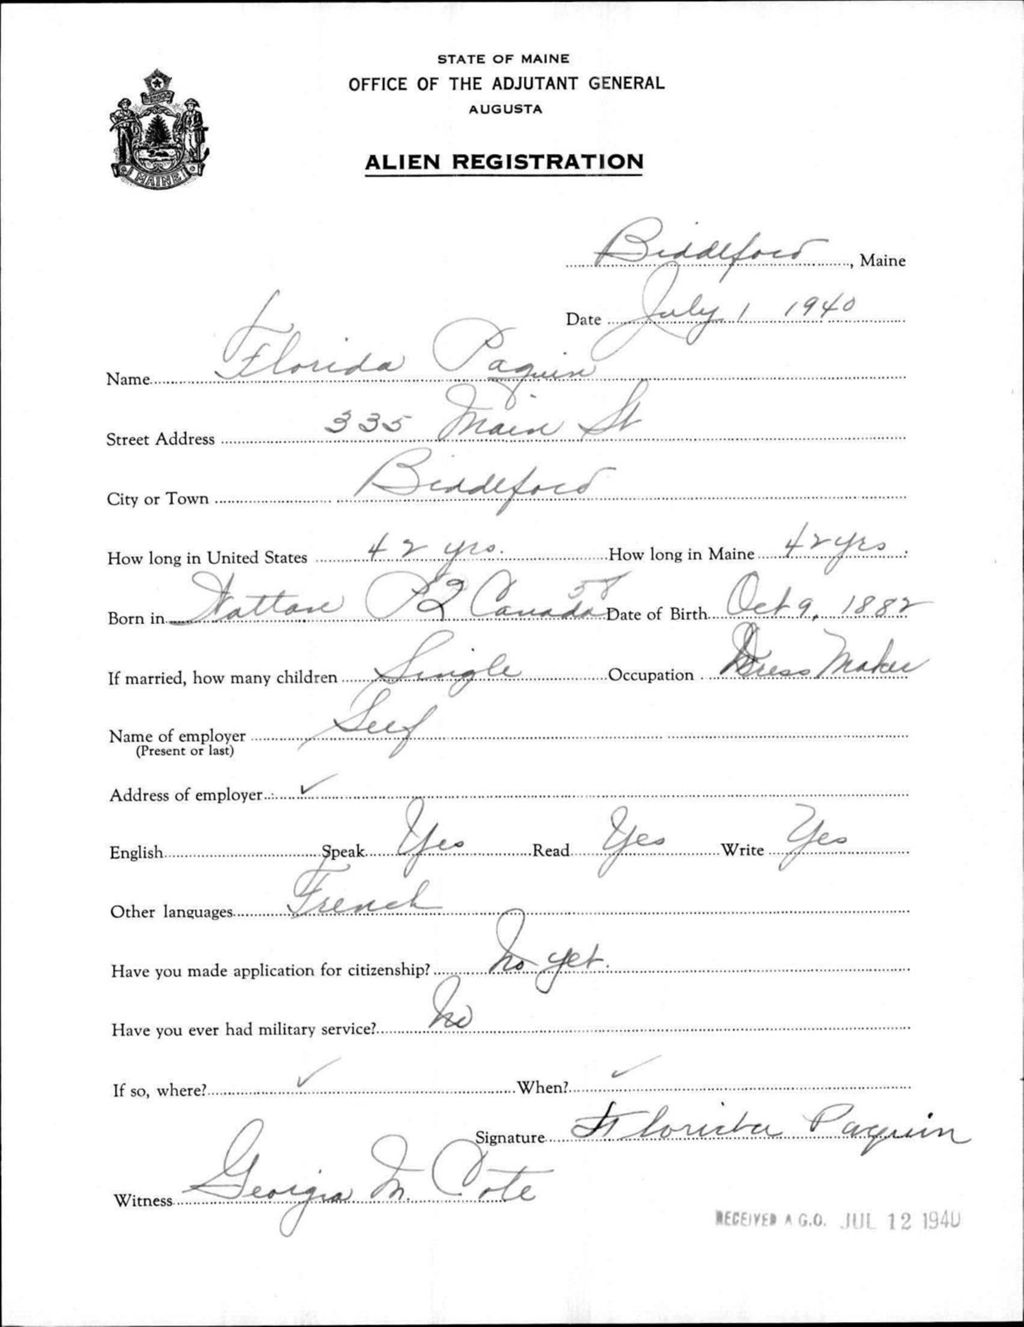 STATE OF MAINE
OFFICE OF THE ADJUTANT GENERAL
AUGUSTA
MAINE
ALIEN REGISTRATION
Biddeford, Maine
Date July 1 1940
Name Florida Paquin
Street Address 335 Main St
City or Town Biddeford
How long in United States 42 yrs. How long in Maine 42 yrs
Born in PQ Canada 58 Date of Birth Oct 9, 1882
If married, how many children Single Occupation Dress Maker
Name of employer Self
(Present or last)
Address of employer ✓
English Speak Yes Read Yes Write Yes
Other languages French
Have you made application for citizenship? No yet.
Have you ever had military service? No
If so, where? ✓ When? ✓
Signature Florida Paquin
Witness Georgia M. Cote
RECEIVED A.G.O. JUL 12 1940